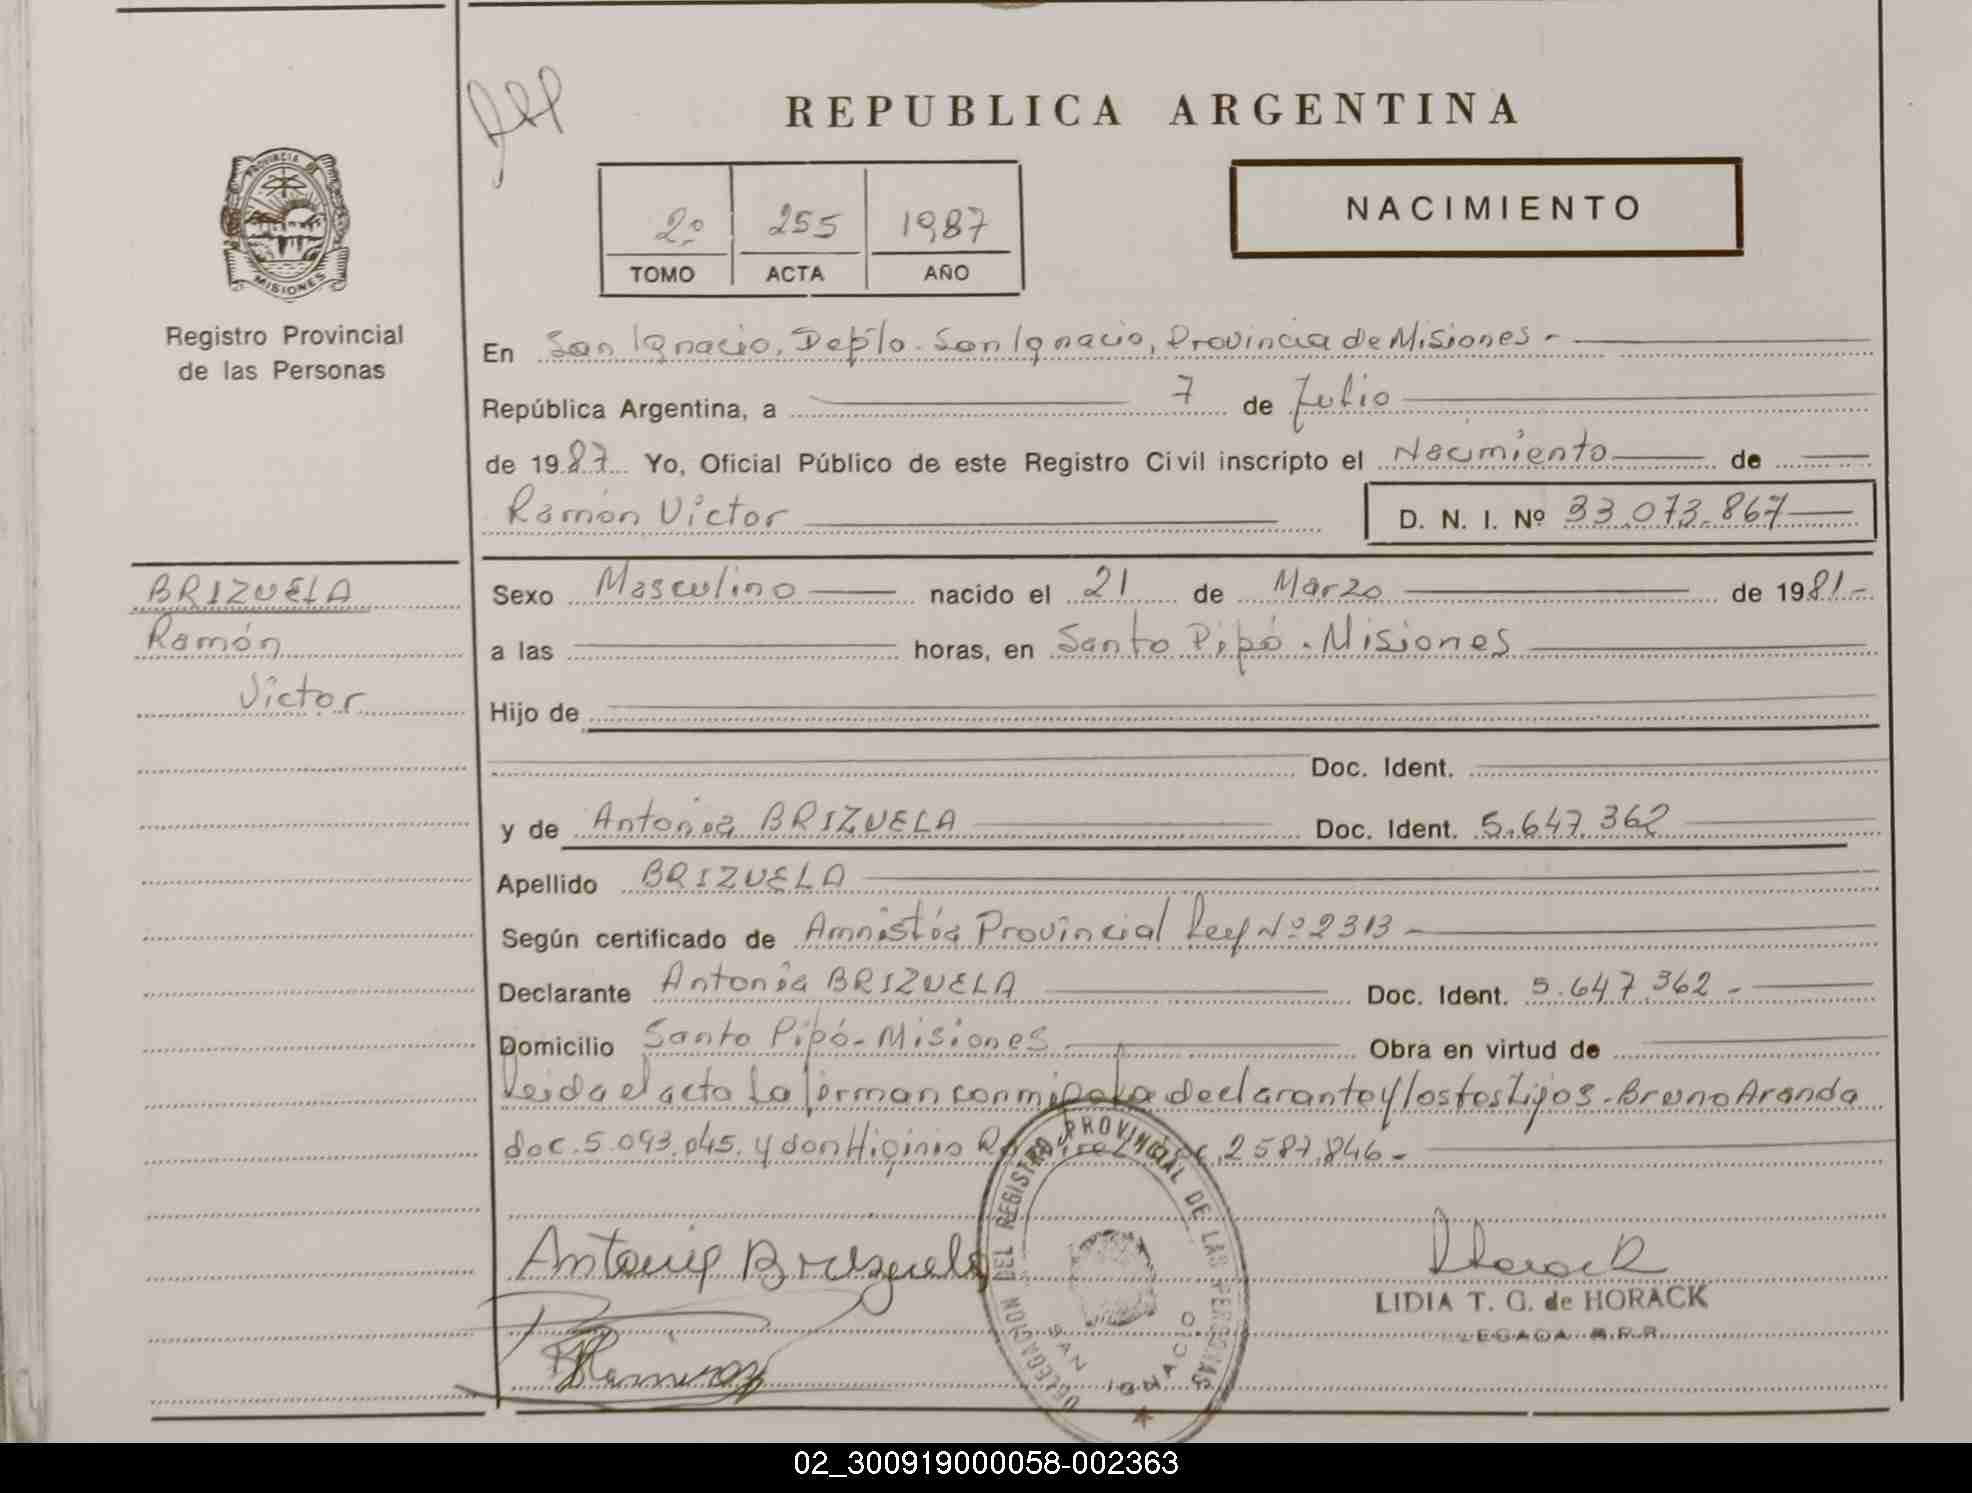 REPUBLICA ARGENTINA
PROVINCIA DE
MISIONES
Registro Provincial
de las Personas
2º 255 1987
TOMO ACTA AÑO
NACIMIENTO
En San Ignacio, Depto. San Ignacio, Provincia de Misiones -
República Argentina, a 7 de Julio
de 1987 Yo, Oficial Público de este Registro Civil inscripto el Nacimiento de
Ramón Victor D. N. I. Nº 33.073.867
BRIZUELA
Ramón
Victor
Sexo Masculino nacido el 21 de Marzo de 1981.-
a las horas, en Santo Pipó. Misiones
Hijo de
Doc. Ident.
y de Antonia BRIZUELA Doc. Ident. 5.647.362
Apellido BRIZUELA
Según certificado de Amnistía Provincial Ley Nº 2313 -
Declarante Antonia BRIZUELA Doc. Ident. 5.647.362 -
Domicilio Santo Pipó - Misiones Obra en virtud de
Leida el acta la firman conmigo la declarante y los testigos. Bruno Aranda
doc. 5.093.045. y don Higinio 2587.846 -
Antonia Brizuela
Horack
LIDIA T. G. de HORACK
DELEGACION DEL REGISTRO PROVINCIAL DE LAS PERSONAS
SAN IGNACIO
02_300919000058-002363